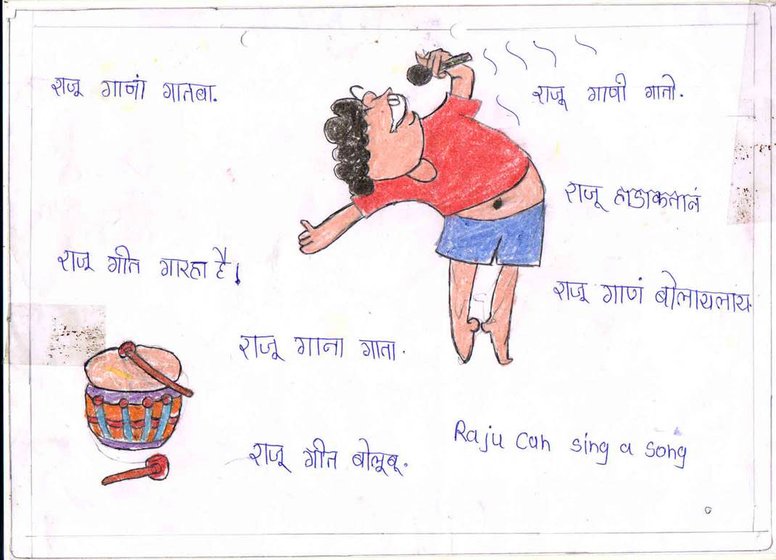 राजू गानां गातबा.
राजू गाणी गातो.
राजू हाडाकतानं
राजू गीत गारहा है।
राजू गाणं बोलायलाय.
राजू गाना गाता.
राजू गीत बोलूबू.
Raju can sing a song